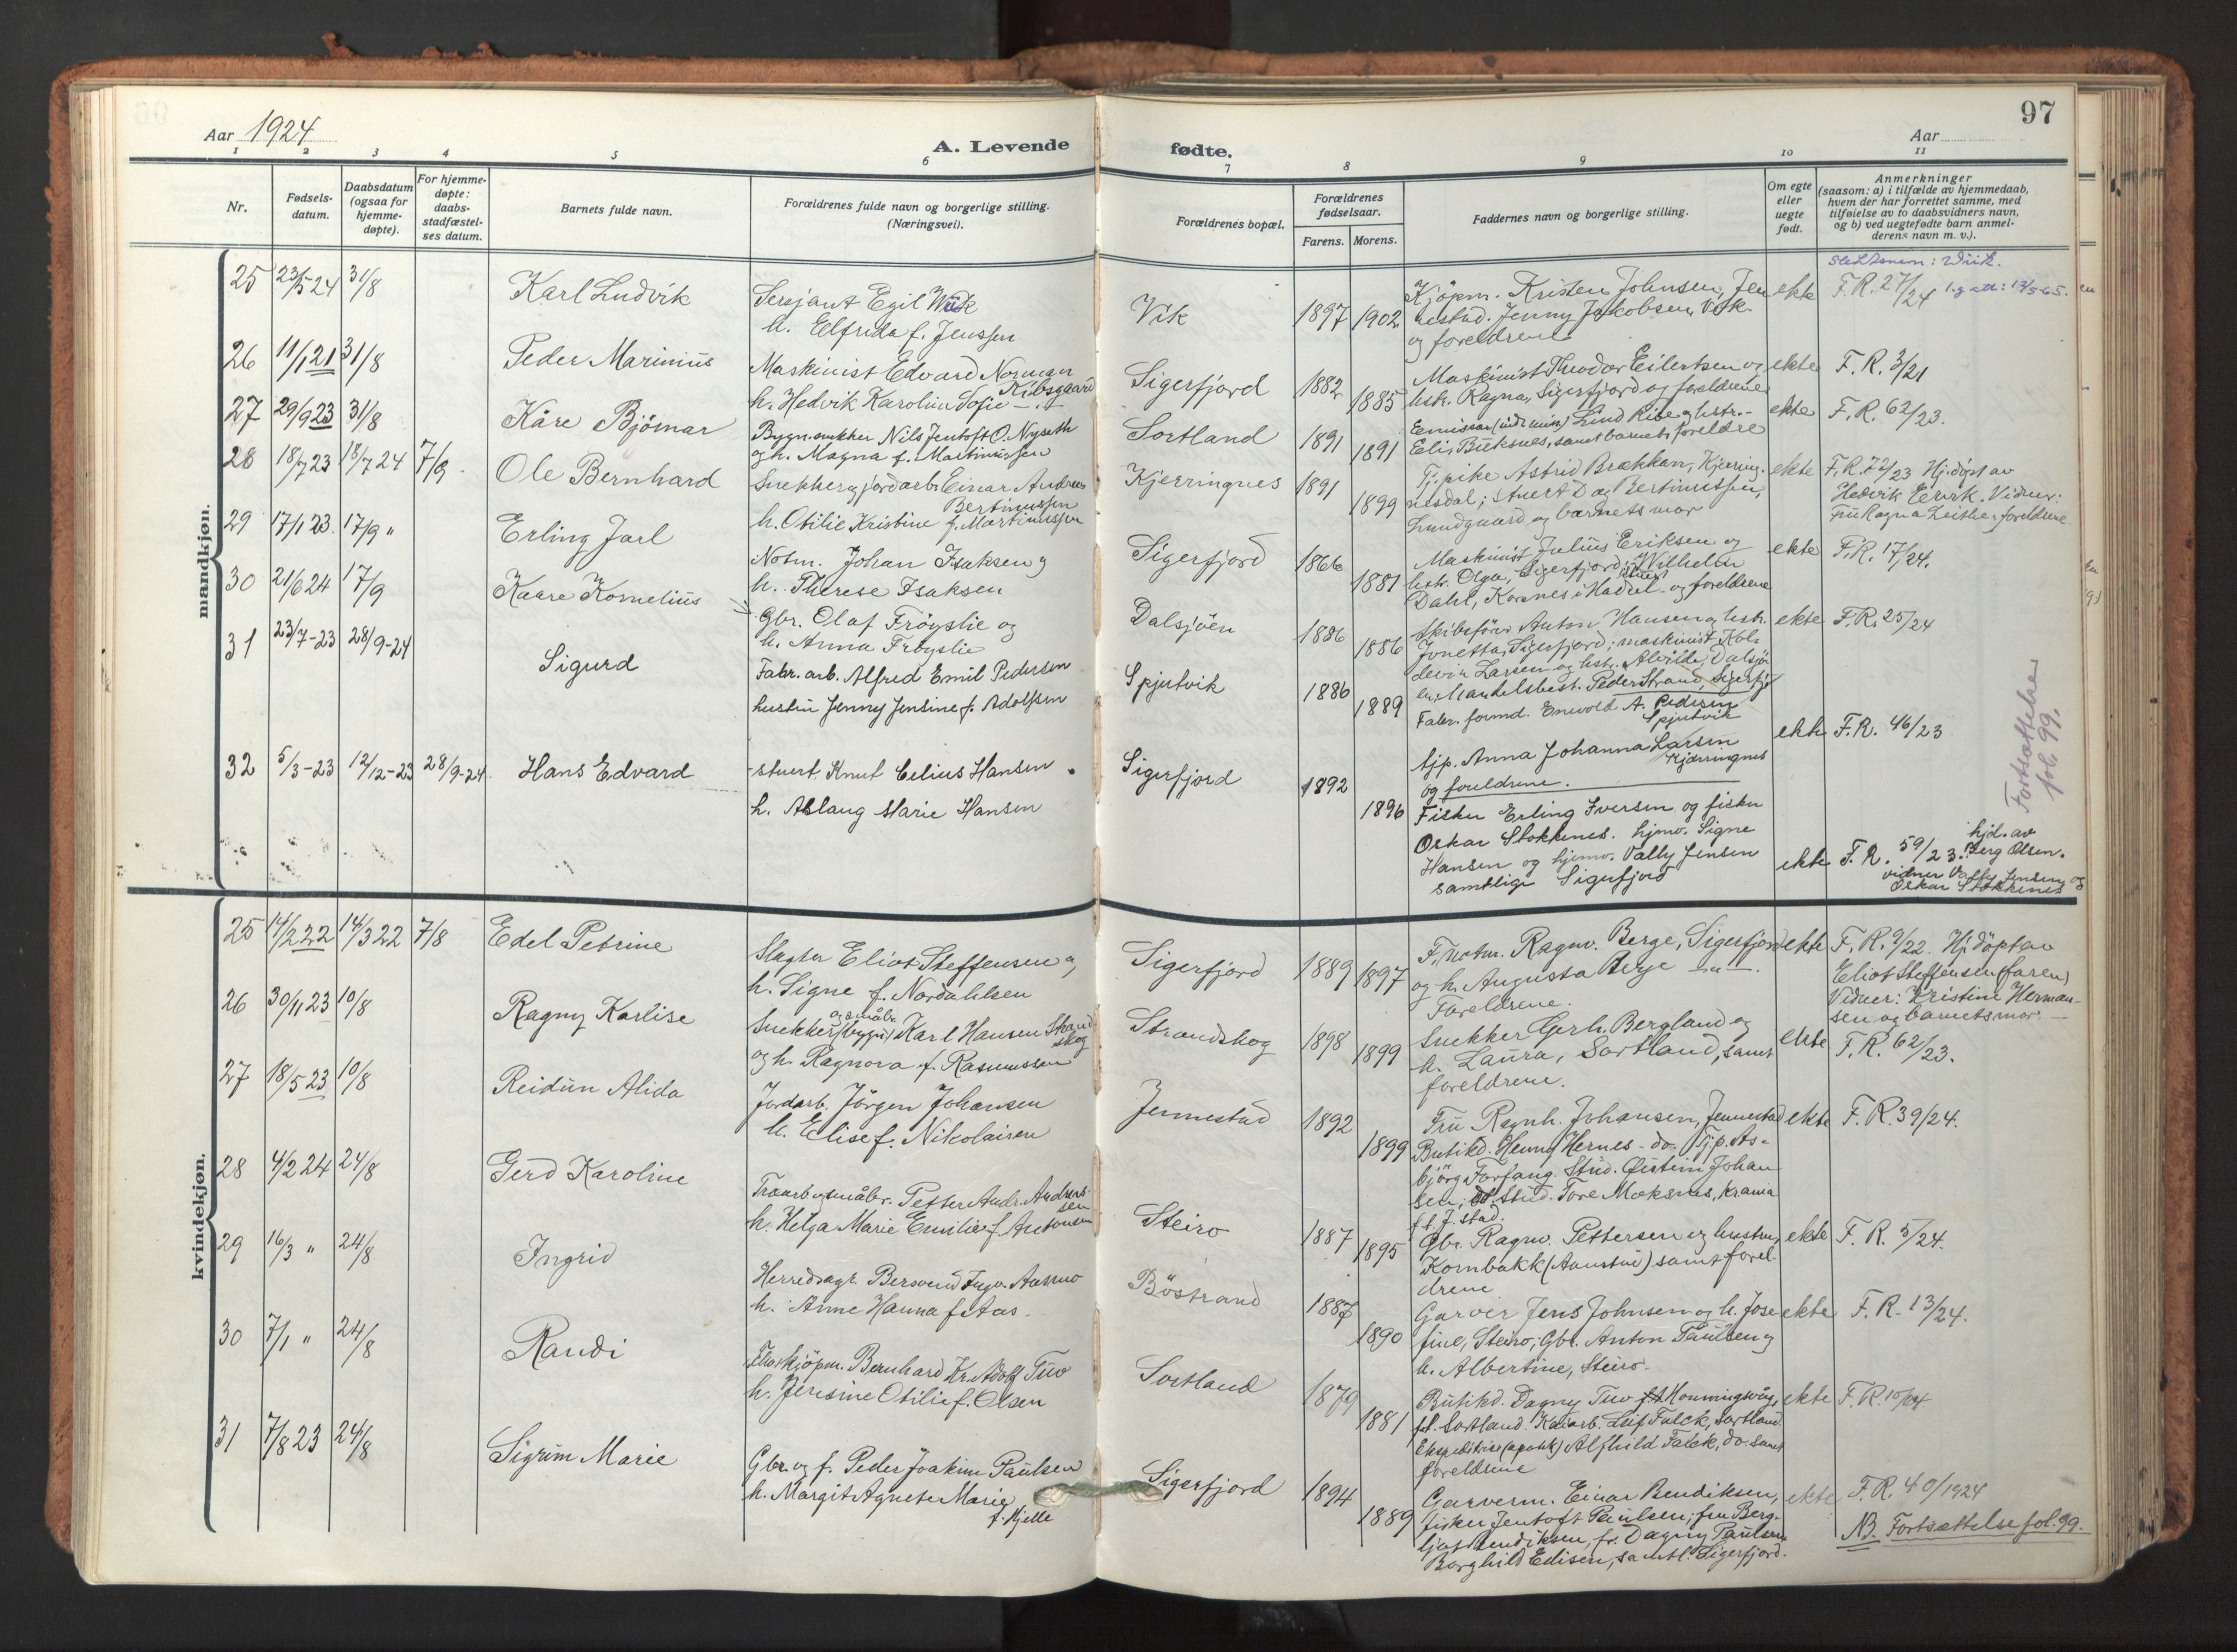 Aar 1924
A. Levende
fødte.
Aar
97
1 2 3 4 5 6 7 8 9 10 11
Nr.
Fødsels-
datum.
Daabsdatum
(ogsaa for
hjemme-
døpte).
For hjemme-
døpte:
daabs-
stadfæstel-
ses datum.
Barnets fulde navn.
Forældrenes fulde navn og borgerlige stilling.
(Næringsvei).
Forældrenes bopæl.
Forældrenes
fødselsaar.
Farens. Morens.
Faddernes navn og borgerlige stilling.
Om egte
eller
uegte
født.
Anmerkninger
(saasom: a) i tilfælde av hjemmedaab,
hvem der har forrettet samme, med
tilføielse av to daabsvidners navn,
og b) ved uegtefødte barn anmel-
derens navn m. v.).
mandkjøn.
25 23/5 24 31/8 Karl Ludvik
Sersjant Egil Wiik
h. Elfrida f. Jenssen
Vik 1897 1902
Kjöpm. Kristen Johnsen, Jen
nestad. Jenny Jakobsen, Vik
og foreldrene
ekte F.R. 27/24
26 11/1 21 31/8 Peder Marinius
Maskinist Edvard Norman
Kibsgaard
h. Hedvik Karoline Sofie
Sigerfjord 1882 1885
Maskinist Theodor Eilertsen og
hstr. Ragna, Sigerfjord og foreldrene
ekte F.R. 3/21
27 29/9 23 31/8 Kåre Bjömar
Bygn.snekker Nils Jentoft O. Nyseth
og h. Magna f. Martinussen
Sortland 1891 1891
Emissær (indremis.) Lind Rise og hstr.
Eli, Buksnes, samt barnets foreldre
ekte F.R. 62/23.
28 18/7 23 18/7 24 7/9 Ole Bernhard
Snekker og jordarb. Einar Andreas
Bertinussen
h. Otilie Kristine f. Martinussen
Kjerringnes 1891 1899
Tj.pike Astrid Brækkan, Kjerring-
nesdal; Stuert D. og Bertinussen,
Lundgaard og barnets mor
ekte F.R. 72/23 Hj.döpt av
Hedvik Ervik. Vidner:
Fru Ragna Leithe, foreldrene
29 17/1 23 17/9 " Erling Jarl
Notm. Johan Isaksen og
h. Therese Isaksen
Sigerfjord 1866 1881
Maskinist Julius Eriksen og
hstr. Olga, Sigerfjord; Wilhelm
Dahl, Kornes i Hadsel og foreldrene
ekte F.R. 17/24.
30 21/6 24 17/9 Kaare Kornelius
Gbr. Olaf Fröyslie og
h. Anna Fröyslie
Dalsjöen 1886 1886
Skibsförer Anton Hansen og hstr.
Jonetta, Sigerfjord; maskinist
Larsen og hstr. Alvilde, Dalsjö
en; Handelsbest. Peder Strand, Sigerfj
ekte F.R. 25/24
31 23/7-23 28/9-24 Sigurd
Fabr. arb. Alfred Emil Pedersen
hustru Jenny Jensine f. Adolfsen
Spjutvik 1886 1889
Fabr. formd. Enevold A. Pedersen
Spjutvik
tjp. Anna Johanna Larsen
Kjærringnes
og foreldrene.
ekte F.R. 46/23
Fortsættelse
fol. 99.
32 5/3-23 12/12-23 28/9-24 Hans Edvard
Stuert. Knut Celius Hansen
h. Aslaug Marie Hansen
Sigerfjord 1892 1896
Fisker Erling Iversen og fisker
Oskar Stokkenes. hjmv. Signe
Hansen og hjemv. Vally Jensen
samtlige Sigerfjord
ekte F.R. 59/23. hjd. av
Berg Olsen.
vidner Vally Jensen og
Oskar Stokkenes
kvindekjøn.
25 14/2 22 14/3 22 7/8 Edel Petrine
Slagter Eliot Steffensen og
h. Signe f. Nordahlsen
Sigerfjord 1889 1897
F. notm. Ragnv. Berge, Sigerfjord
og h. Augusta Berge
Foreldrene.
ekte F.R. 9/22. Hj.döpt av
Eliot Steffensen (faren)
Vidner: Kristine Herman-
sen og barnets mor.
26 30/11 23 10/8 Ragny Karlise
og småbr.
Snekker (bygn) Karl Hansen Strand
skog
og h. Ragnora f. Rasmussen
Strandskog 1898 1899
Snekker Gerh. Bergland og
h. Laura, Sortland, samt
foreldrene.
ekte F.R. 62/23.
27 18/5 23 10/8 Reidun Alida
Jordarb. Jörgen Johansen
h. Elise f. Nikolaisen
Jennestad 1892 1899
Fru Ragnh. Johansen, Jennestad
Butikd. Henny Hernes - do. Tj.p. As-
björg Forfang. Stud. Øistein Johan
sen, do. Stud. Tore Moksnes, Krania
f.t. J.stad.
ekte F.R. 39/24.
28 4/2 24 24/8 Gerd Karoline
Træarb og småbr. Petter Andr. Andreas-
sen
h. Helga Marie Emilie f. Antonsen
Steiro 1887 1895
Gbr. Ragnv. Pettersen og hustru,
Kornbakk (Aunstad) samt forel-
drene
ekte F.R. 5/24.
29 16/3 " 24/8 Ingrid
Herredsagr. Bersvend Ingv. Aasmo
h. Anne Hanna f. Aas
Böstrand 1887 1890
Garver Jens Johnsen og h. Jose
fine, Steiro; Gbr. Anton Paulsen og
h. Albertine, Steiro
ekte F.R. 13/24.
30 7/1 " 24/8 Randi
Bernhard Kr. Adolf Tuv
h. Jensine Otilie f. Olsen
Sortland 1879 1881
Butikd. Dagny Tuv Honningsvåg,
f.t. Sortland. Leif Falck, Sortland
Ekspeditrise (apotek) Alfhild Falck, do. samt
foreldrene
ekte F.R. 10/24
31 7/8 23 24/8 Sigrun Marie
Gbr. og f. Peder Joakim Paulsen
h. Margit Agnete Marie
f. Kjelle
Sigerfjord 1894 1889
Garverm. Einar Bendiksen,
fisker Jentoft Paulsen, fru Berg-
ljot Bendiksen, fr. Dagny Paulsen
Borghild Edisen, samtl. Sigerfjord.
ekte F.R. 40/1924
NB. Fortsættelse fol. 99.